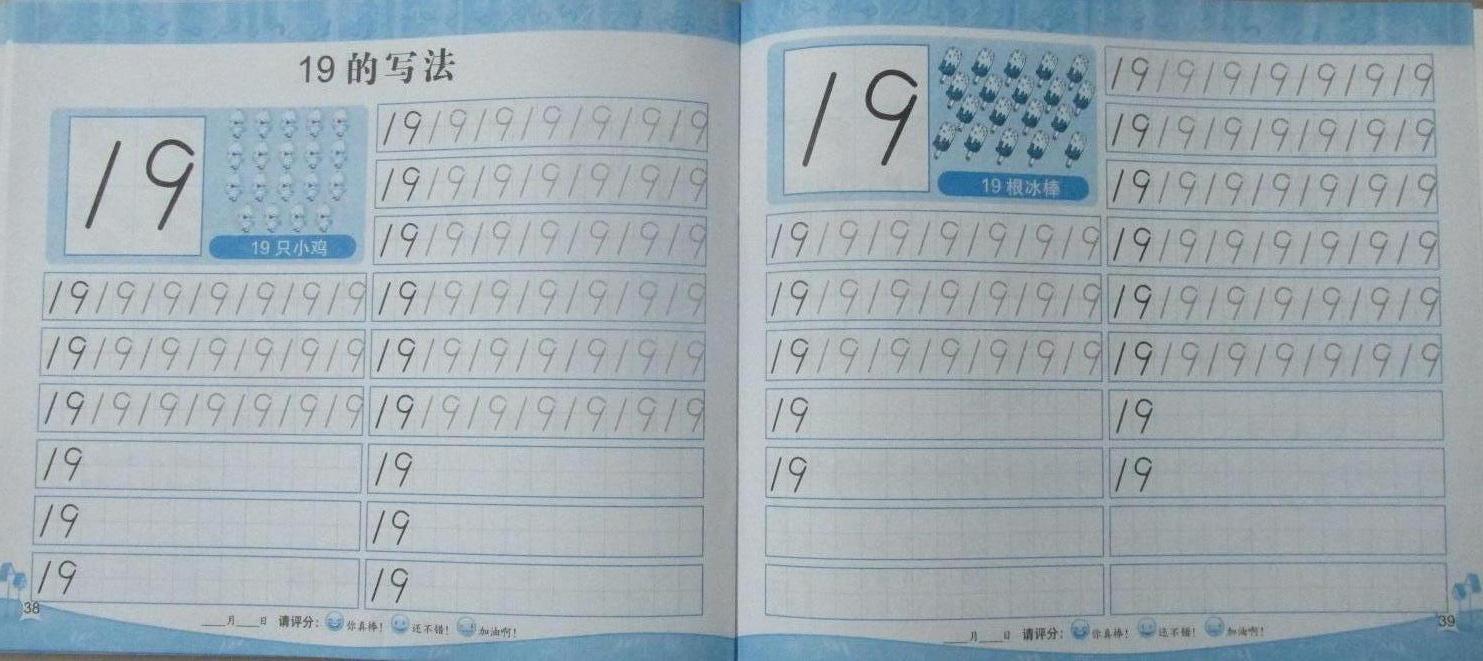 19的写法
19
19只小鸡
19 19 19 19 19 19 19
19 19 19 19 19 19 19
19 19 19 19 19 19 19
19
19
19
19 19 19 19 19 19 19
19 19 19 19 19 19 19
19 19 19 19 19 19 19
19 19 19 19 19 19 19
19 19 19 19 19 19 19
19 19 19 19 19 19 19
19
19
19
38
___月___日 请评分: 你真棒! 还不错! 加油啊!
19
19根冰棒
19 19 19 19 19 19 19
19 19 19 19 19 19 19
19 19 19 19 19 19 19
19
19
19 19 19 19 19 19 19
19 19 19 19 19 19 19
19 19 19 19 19 19 19
19 19 19 19 19 19 19
19 19 19 19 19 19 19
19 19 19 19 19 19 19
19
19
___月___日 请评分: 你真棒! 还不错! 加油啊!
39